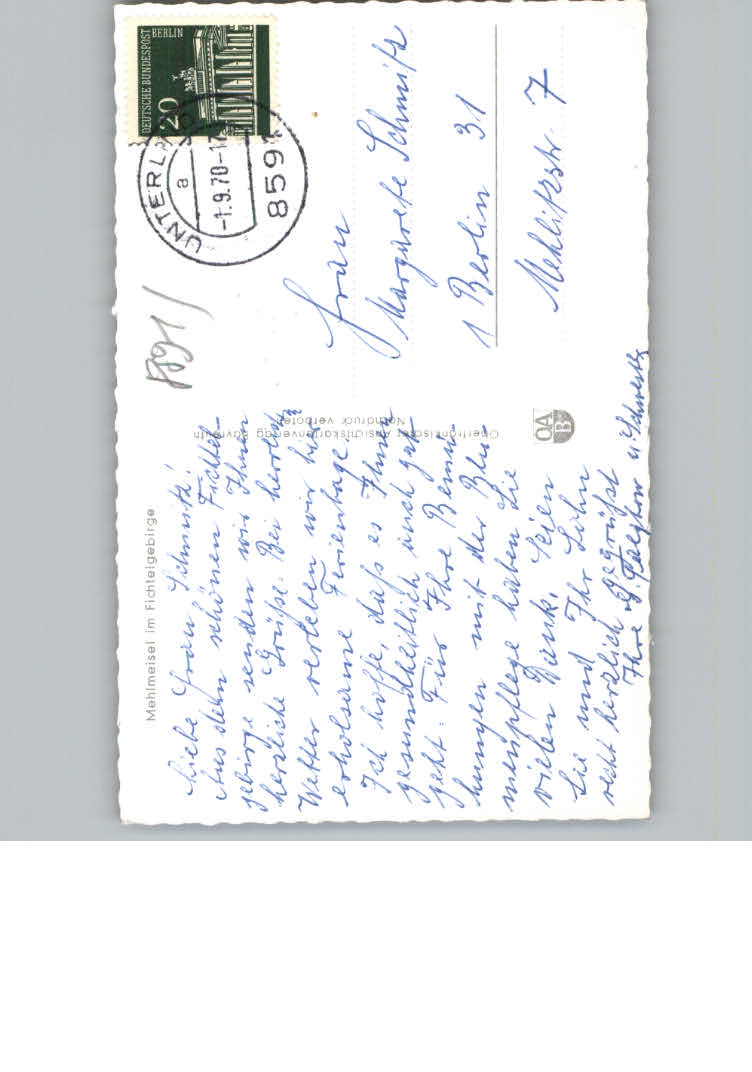 Mehlmeisel im Fichtelgebirge
Liebe Frau Schmitz!
Aus dem schönen Fichtel-
gebirge senden wir Ihnen
herzliche Grüße. Bei herrlich
Wetter verleben wir hier
erholsame Ferientage.
Ich hoffe, daß es Ihnen
gesundheitlich auch gut
geht. Für Ihre Bemü-
hungen mit der Blu
menpflege haben Sie
vielen Dank. Seien
Sie und Ihr Sohn
recht herzlich gegrüßt
Ihre u. Schwester
Oberfränkischer Ansichtskartenverlag Bayreuth
Nachdruck verboten
OA
B
DEUTSCHE BUNDESPOST BERLIN
20
UNTERL
a
-1.9.70-1
8591
8591
Frau
Margarete Schmitz
1 Berlin 31
Mehlitzstr. 7